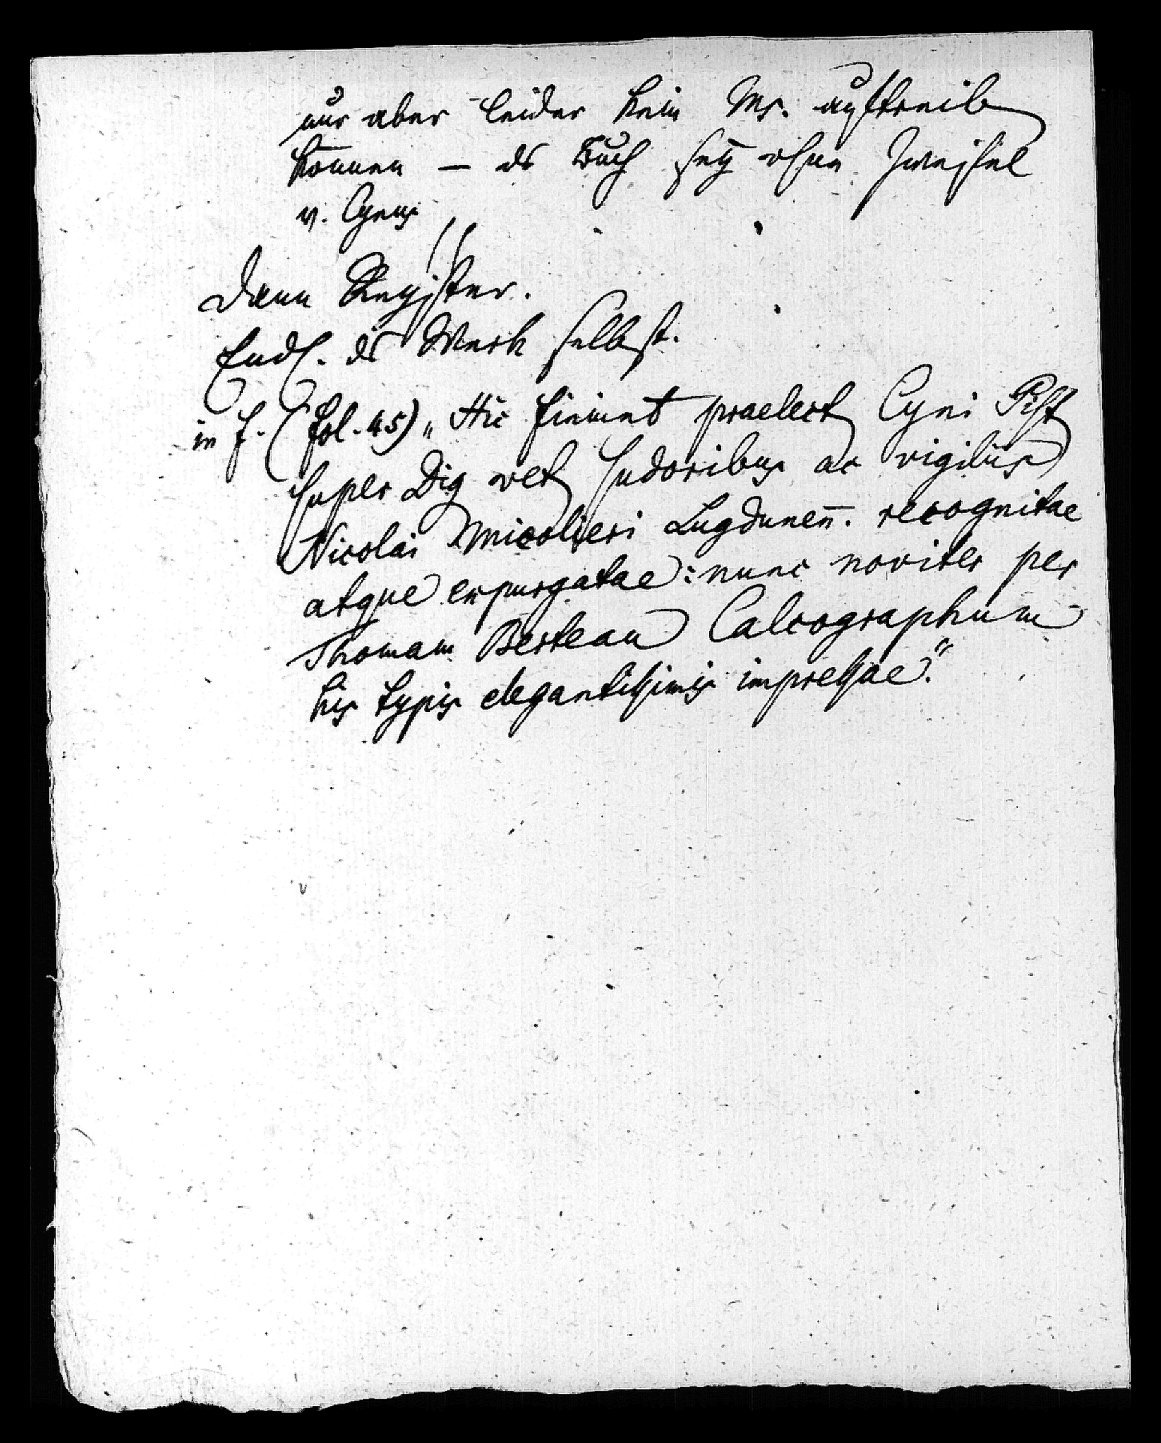 nur aber leider kein Ms. auftreib
können – ds Buch sey ohne Zweifel
v. Cynus
Dann Register.
Endl. ds Werk selbst.
in f. (fol. 45) „Hic finiunt praelect Cyni Pist
super Dig vet sudoribus ac vigiliis
Nicolai Micolieri Lugdunen̄. recognitae
atque expurgatae: nunc noviter per
Thomam Berteau Calcographum
his typis elegantissimis impressae."